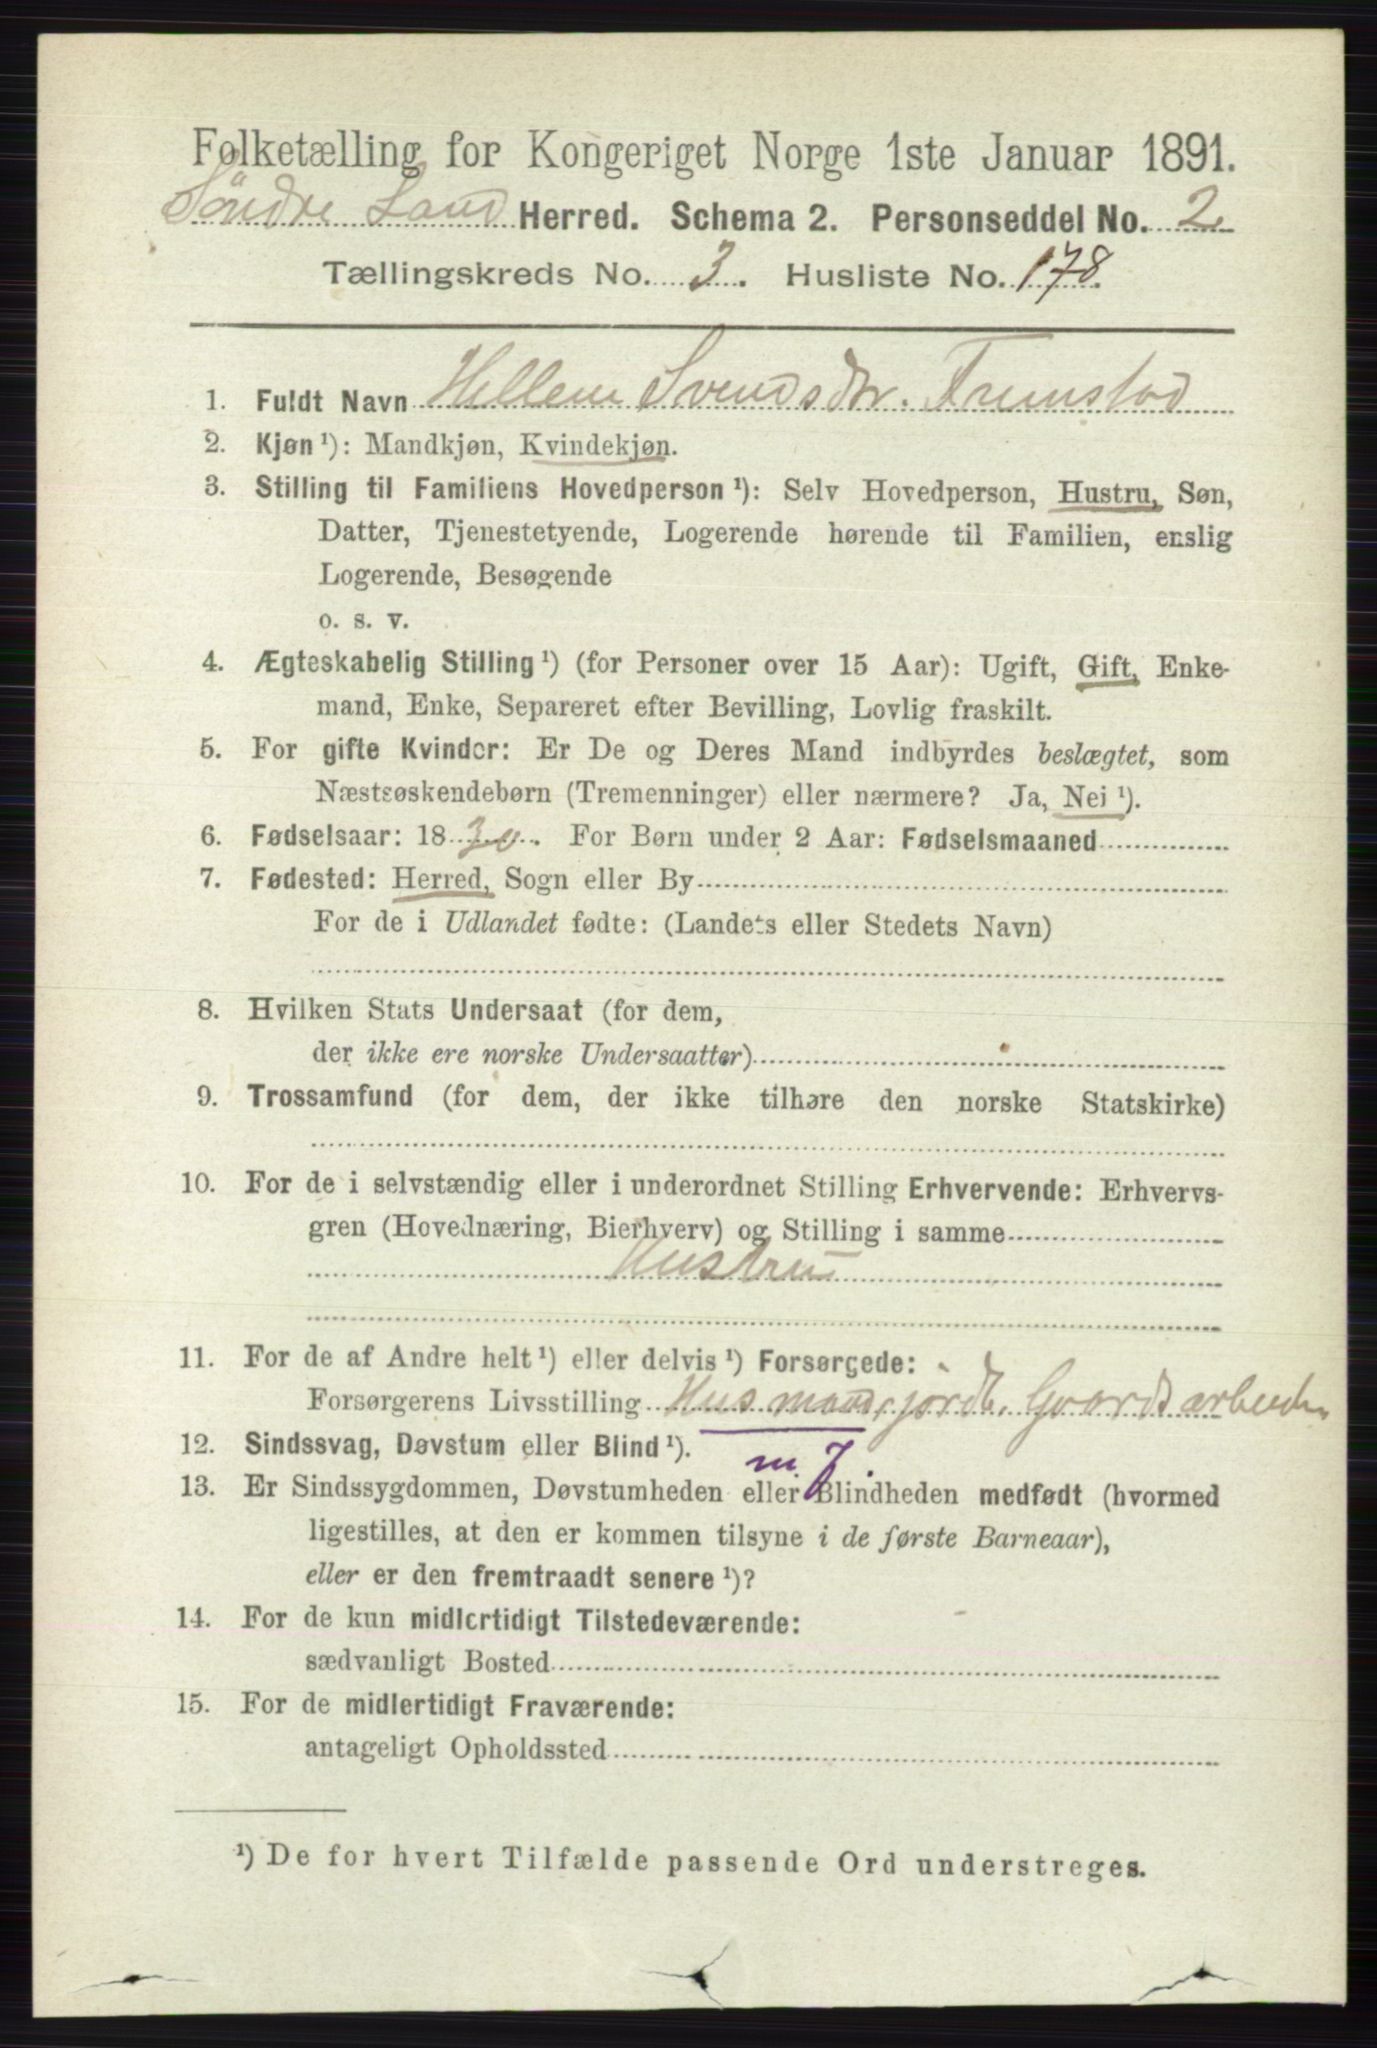 Folketælling for Kongeriget Norge 1ste Januar 1891.
Söndre Land Herred. Schema 2. Personseddel No. 2
Tællingskreds No. 3. Husliste No. 178.
1. Fuldt Navn Hellene Svendsdtr.
2. Kjøn ¹): Mandkjøn, Kvindekjøn.
3. Stilling til Familiens Hovedperson ¹): Selv Hovedperson, Hustru, Søn,
Datter, Tjenestetyende, Logerende hørende til Familien, enslig
Logerende, Besøgende
o. s. v.
4. Ægteskabelig Stilling ¹) (for Personer over 15 Aar): Ugift, Gift, Enke-
mand, Enke, Separeret efter Bevilling, Lovlig fraskilt.
5. For gifte Kvinder: Er De og Deres Mand indbyrdes beslægtet, som
Næstsøskendebørn (Tremenninger) eller nærmere? Ja, Nei ¹).
6. Fødselsaar: 1830. For Børn under 2 Aar: Fødselsmaaned
7. Fødested: Herred, Sogn eller By
For de i Udlandet fødte: (Landets eller Stedets Navn)
8. Hvilken Stats Undersaat (for dem,
der ikke ere norske Undersaatter)
9. Trossamfund (for dem, der ikke tilhøre den norske Statskirke)
10. For de i selvstændig eller i underordnet Stilling Erhvervende: Erhvervs-
gren (Hovednæring, Bierhverv) og Stilling i samme
Hustru
11. For de af Andre helt ¹) eller delvis ¹) Forsørgede:
Forsørgerens Livsstilling Husmand, jordb. Gaardsarbeider
12. Sindssvag, Døvstum eller Blind ¹).
m. J.
13. Er Sindssygdommen, Døvstumheden eller Blindheden medfødt (hvormed
ligestilles, at den er kommen tilsyne i de første Barneaar),
eller er den fremtraadt senere ¹)?
14. For de kun midlertidigt Tilstedeværende:
sædvanligt Bosted
15. For de midlertidigt Fraværende:
antageligt Opholdssted
¹) De for hvert Tilfælde passende Ord understreges.